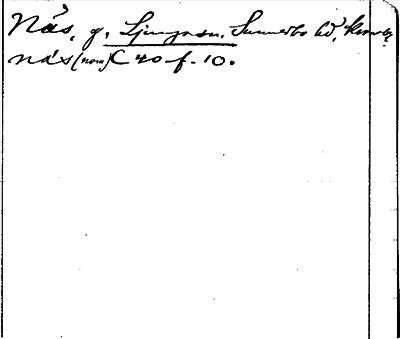 Näs, g. Ljungasn. Sunnerbo hd, Kronobg
nä's (nom) C 40 f. 10.